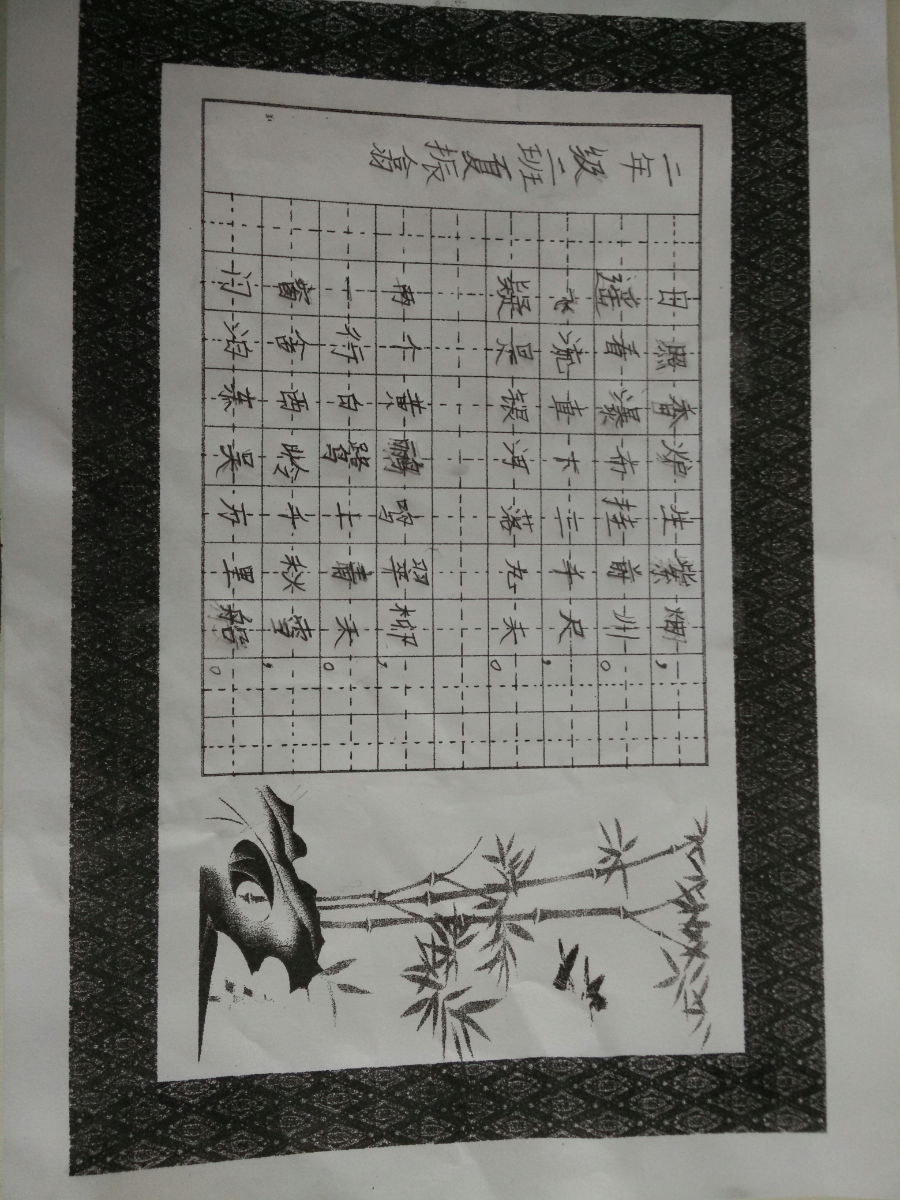 二年级二班夏振翕
日照香炉生紫烟，
遥看瀑布挂前川。
飞流直下三千尺，
疑是银河落九天。
两个黄鹂鸣翠柳，
一行白鹭上青天。
窗含西岭千秋雪，
门泊东吴万里船。